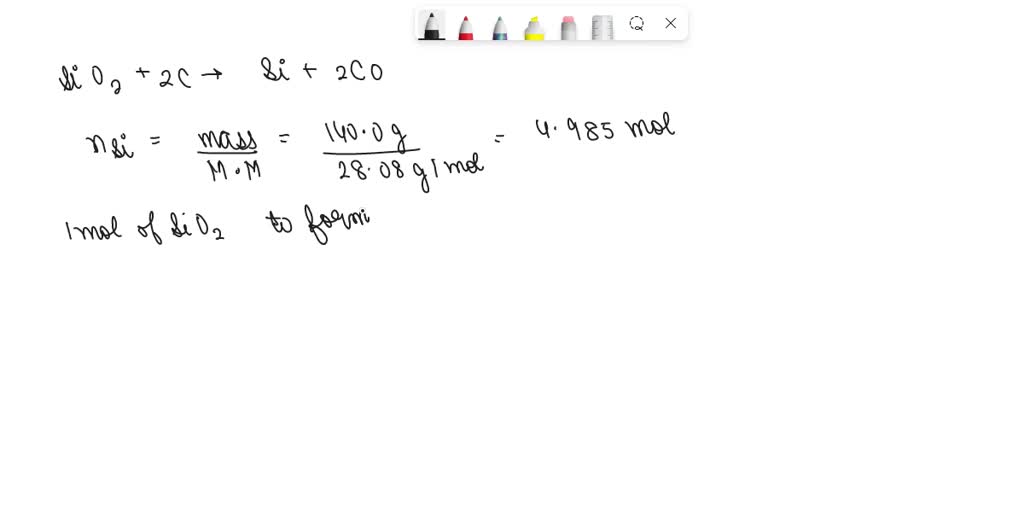 SiO2 + 2C → Si + 2CO
nSi = mass/M.M = 140.0g/28.08 g/mol = 4.985 mol
1mol of SiO2 to form